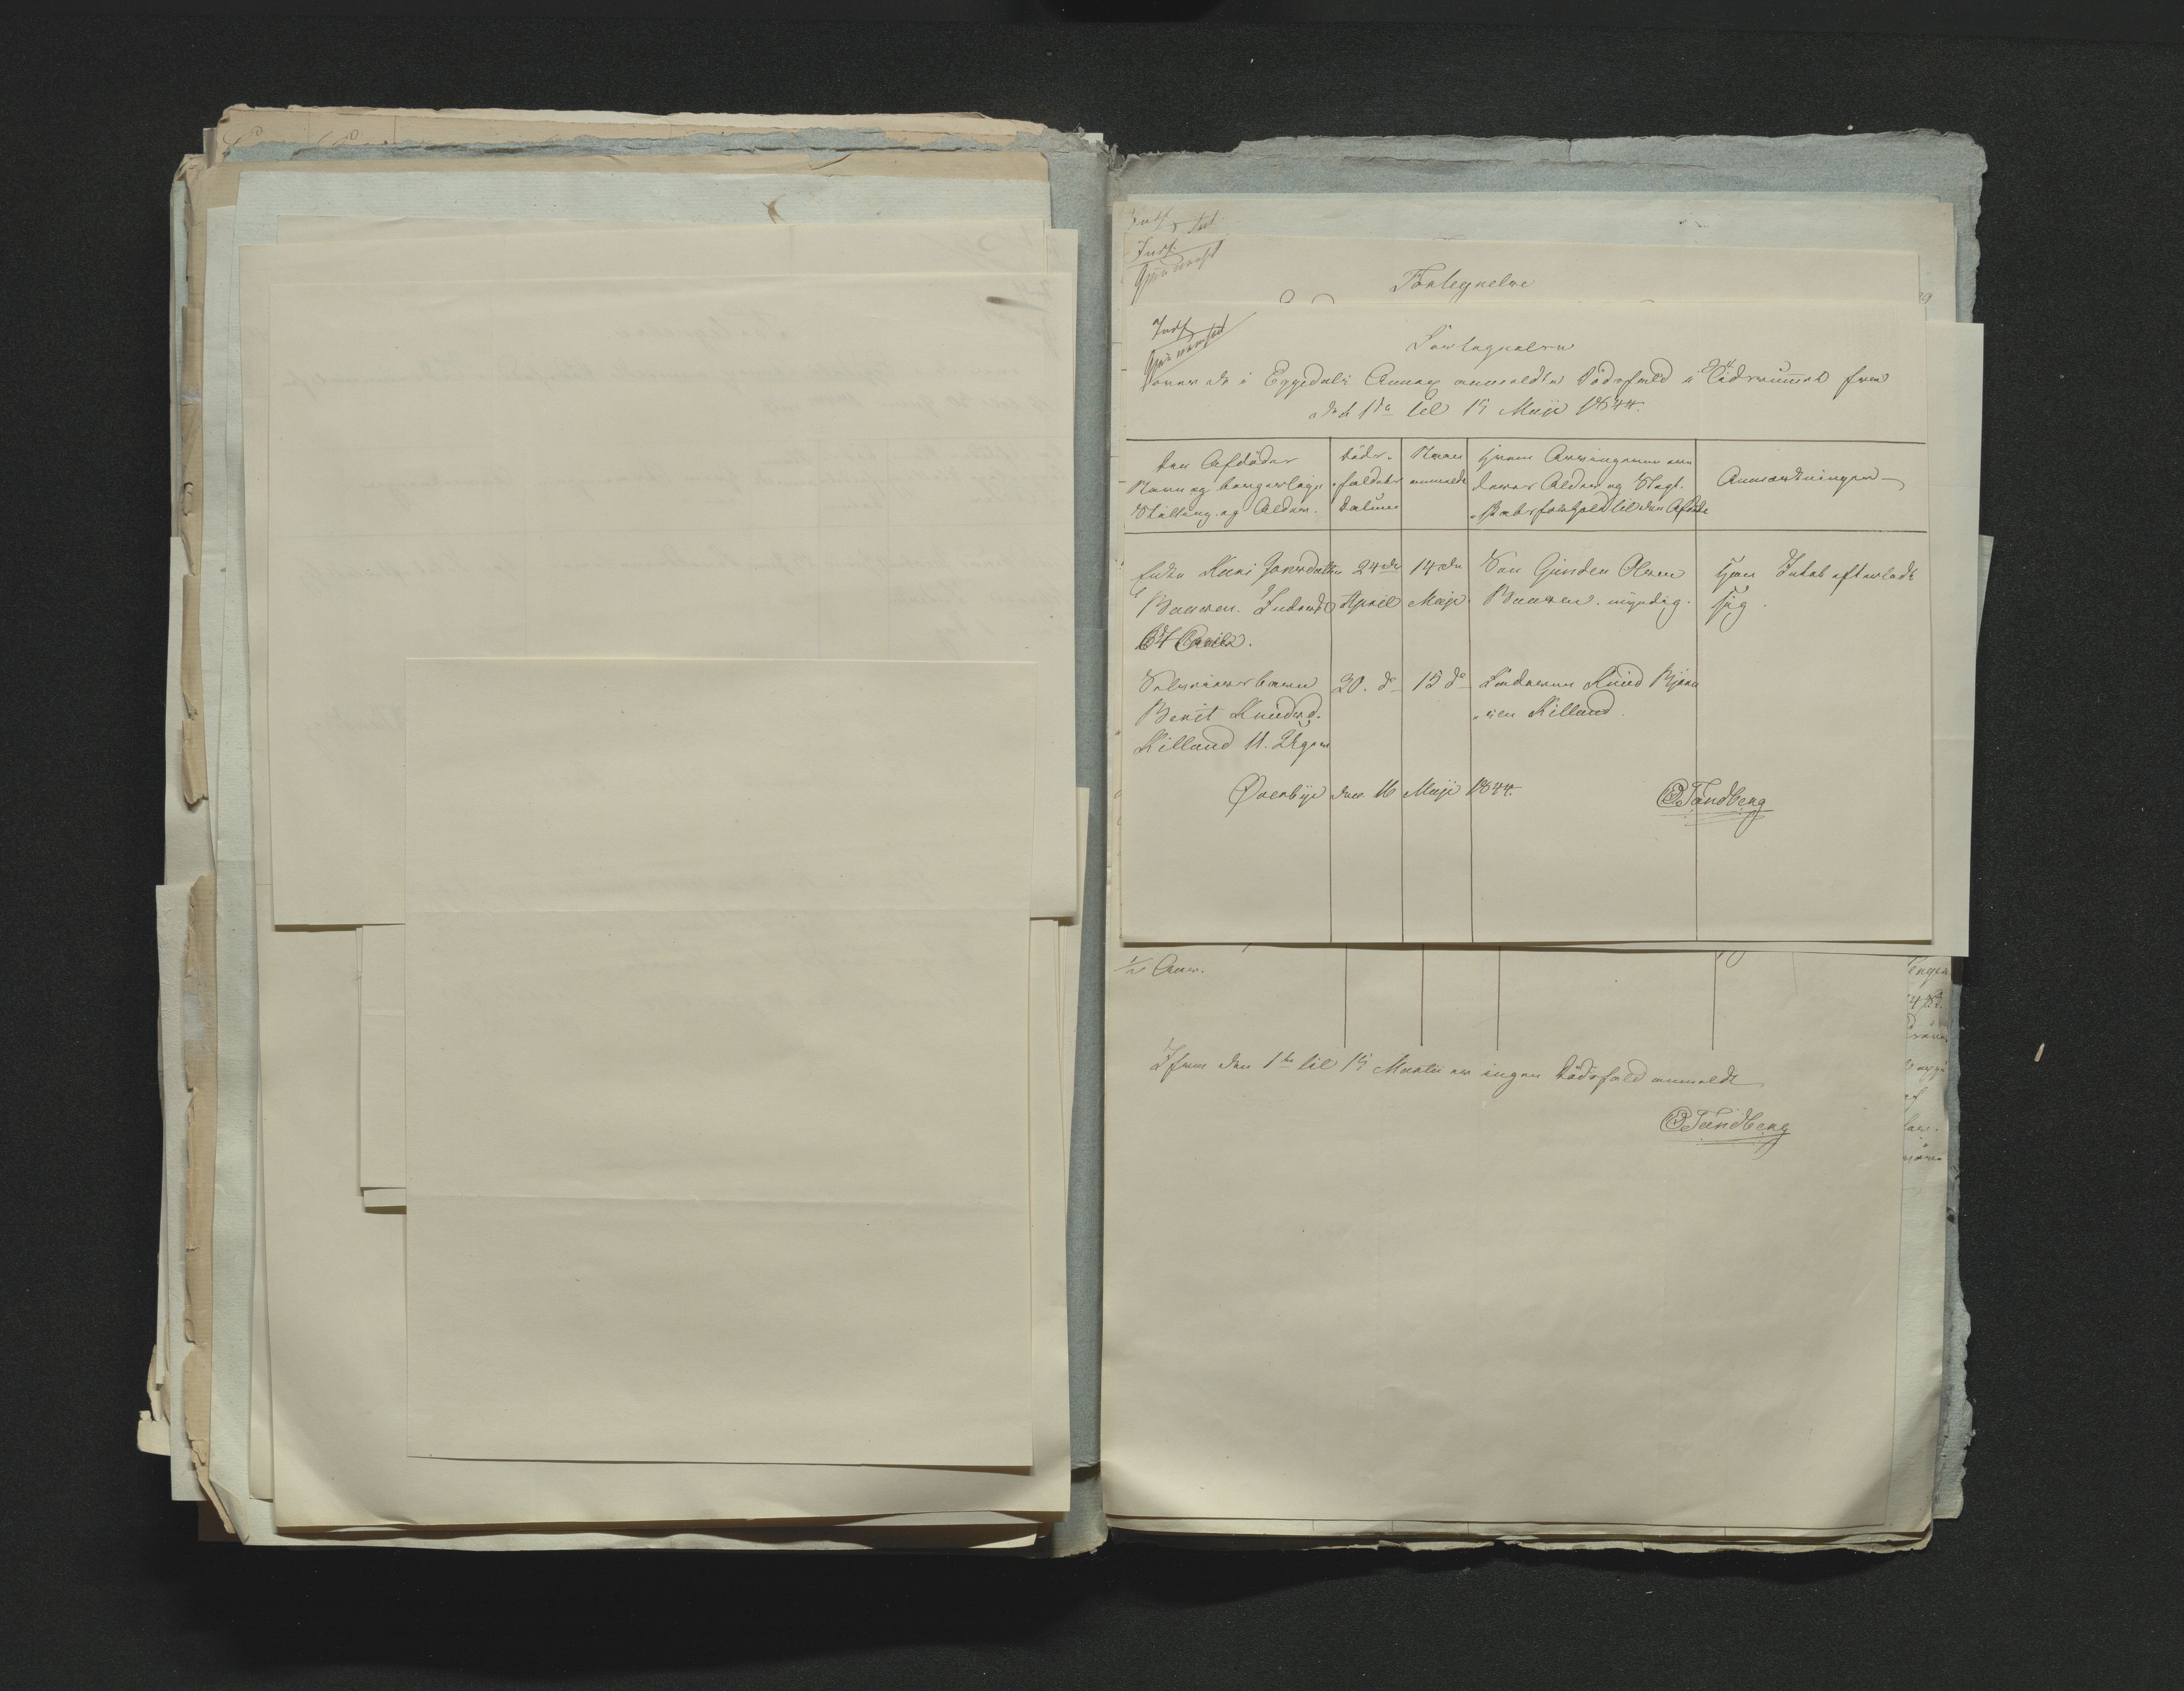 Indf
Indf.
Fortegnelse
Indf
Fortegnelse
over de i Eggedals Annex anmeldte Dödsfald i Tidsrummet fra
den 1de til 15 Maji 1844.
Den Afdödes
Navn og borgerlige
Stilling og Alder.
Döds-
faldets
Datum
Naar
anmeldt
Hvem Arvingerne ere
deres Alder og Slægt-
skabsforhold til den Afdöde
Anmærkninger
Enke Kari Jonsdatter
Baasen. Inderst
64 Aar
24de
April
14de
Maji
Sön Gunder Olsen
Baasen. myndig.
Har Intet efterladt
sig.
Selveierbarn
Berit Knudsd.
Killand 11. Uger
20. de
15 de
Faderen Knud Bjørn
-sen Killand.
Överbye den 16 Maji 1844.
O Tandberg
1/2 Aar.
Ifra den 1te til 15 Martii er ingen Dödsfald anmeldt
O Tandberg